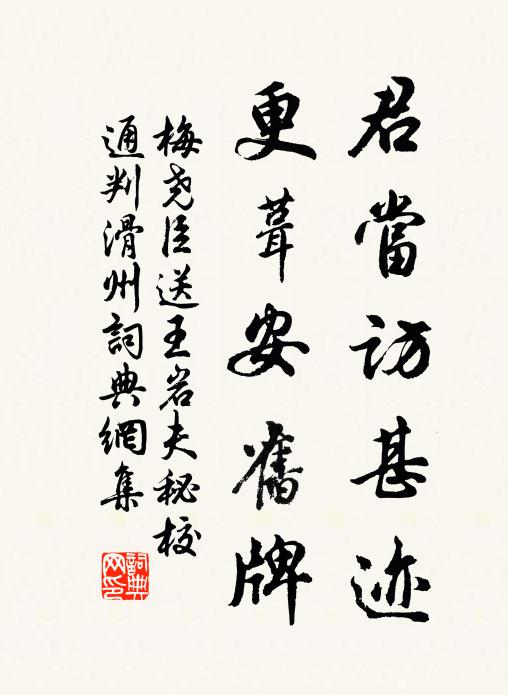 君當訪甚迹
更葺安舊牌
梅尧臣送王岩夫秘校
通判滑州詞典網集
詞典
网印